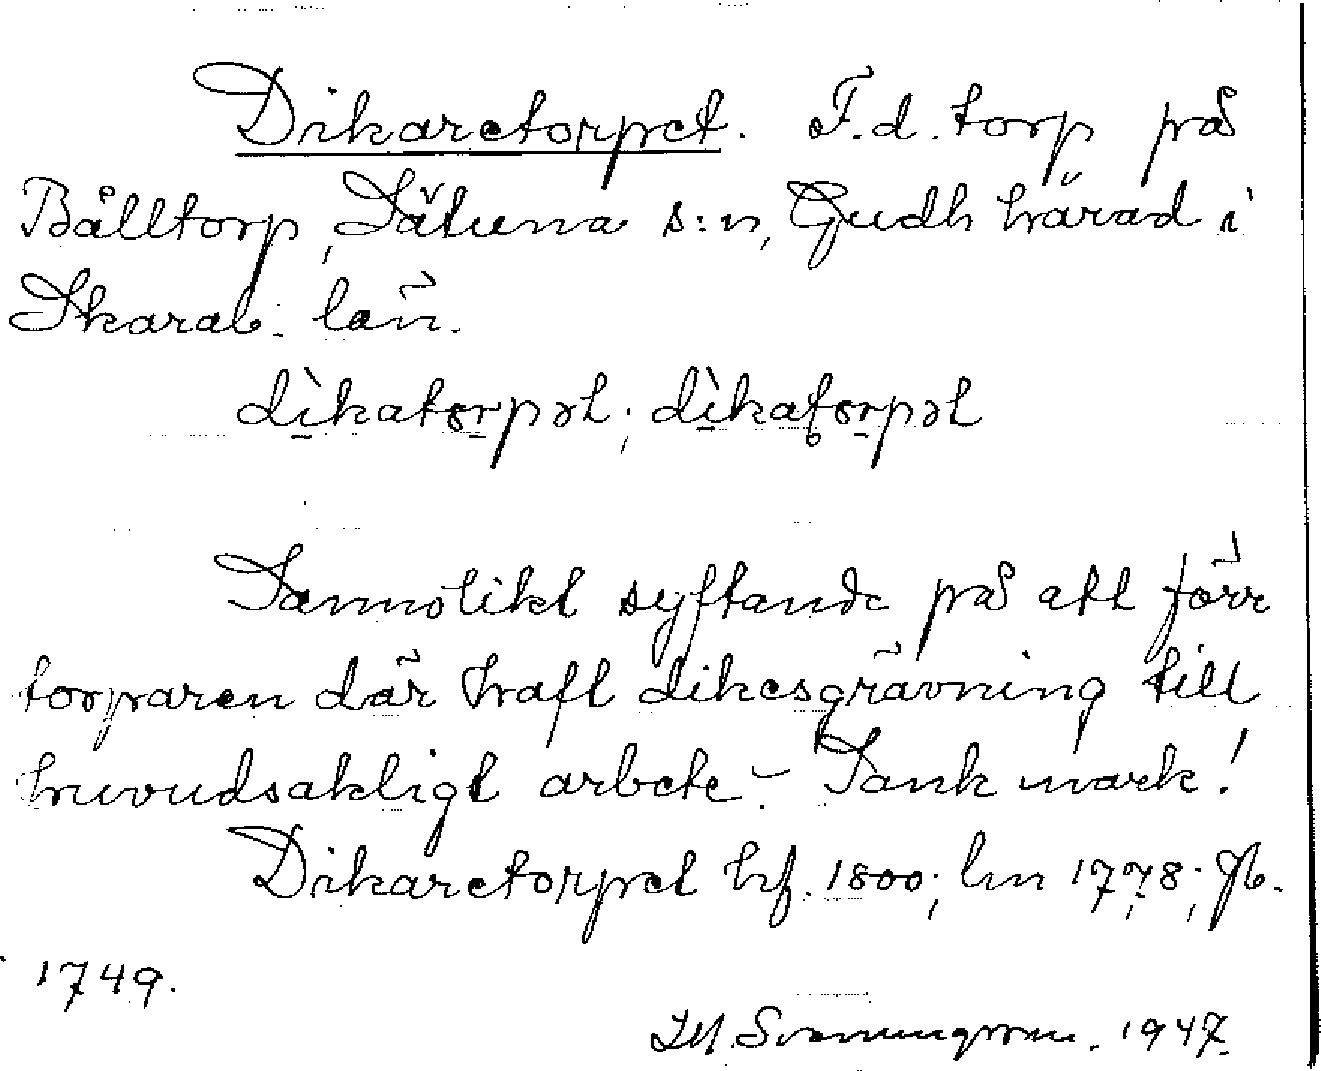 Dikaretorpet. F.d. torp på
Bålltorp, Sätuna s:n, Gudh härad i
Skarab. län.
dìkatorpət; dìkat̥orpət
Sannolikt syftande på att förr
torparen där haft dikesgrävning till
huvudsakligt arbete. – Sank mark!
Dikaretorpet hf. 1800; lm 1778; fb.
1749.
1947.